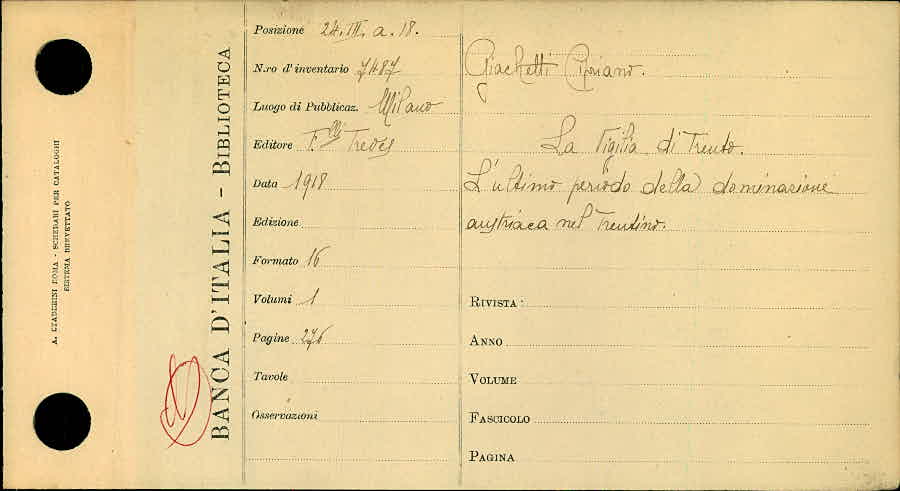 A. STADERINI ROMA - SCHEDARI PER CATALOGHI
SISTEMA BREVETTATO
BANCA D'ITALIA - BIBLIOTECA
Posizione 24. III. a. 18.
N.ro d'inventario 7487
Luogo di Pubblicaz. Milano
Editore F.lli Treves
Data 1918
Edizione
Formato 16
Volumi 1
Pagine 276
Tavole
Osservazioni
Giachetti Cipriano.
La Vigilia di Trento.
L'ultimo periodo della dominazione
austriaca nel Trentino.
RIVISTA:
ANNO
VOLUME
FASCICOLO
PAGINA